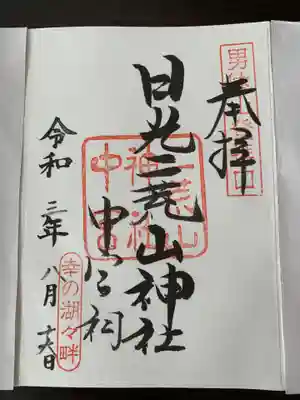 奉拝
日光二荒山神社
中宮祠
令和三年八月十六日
二荒山
神社
中宮
幸の湖々畔